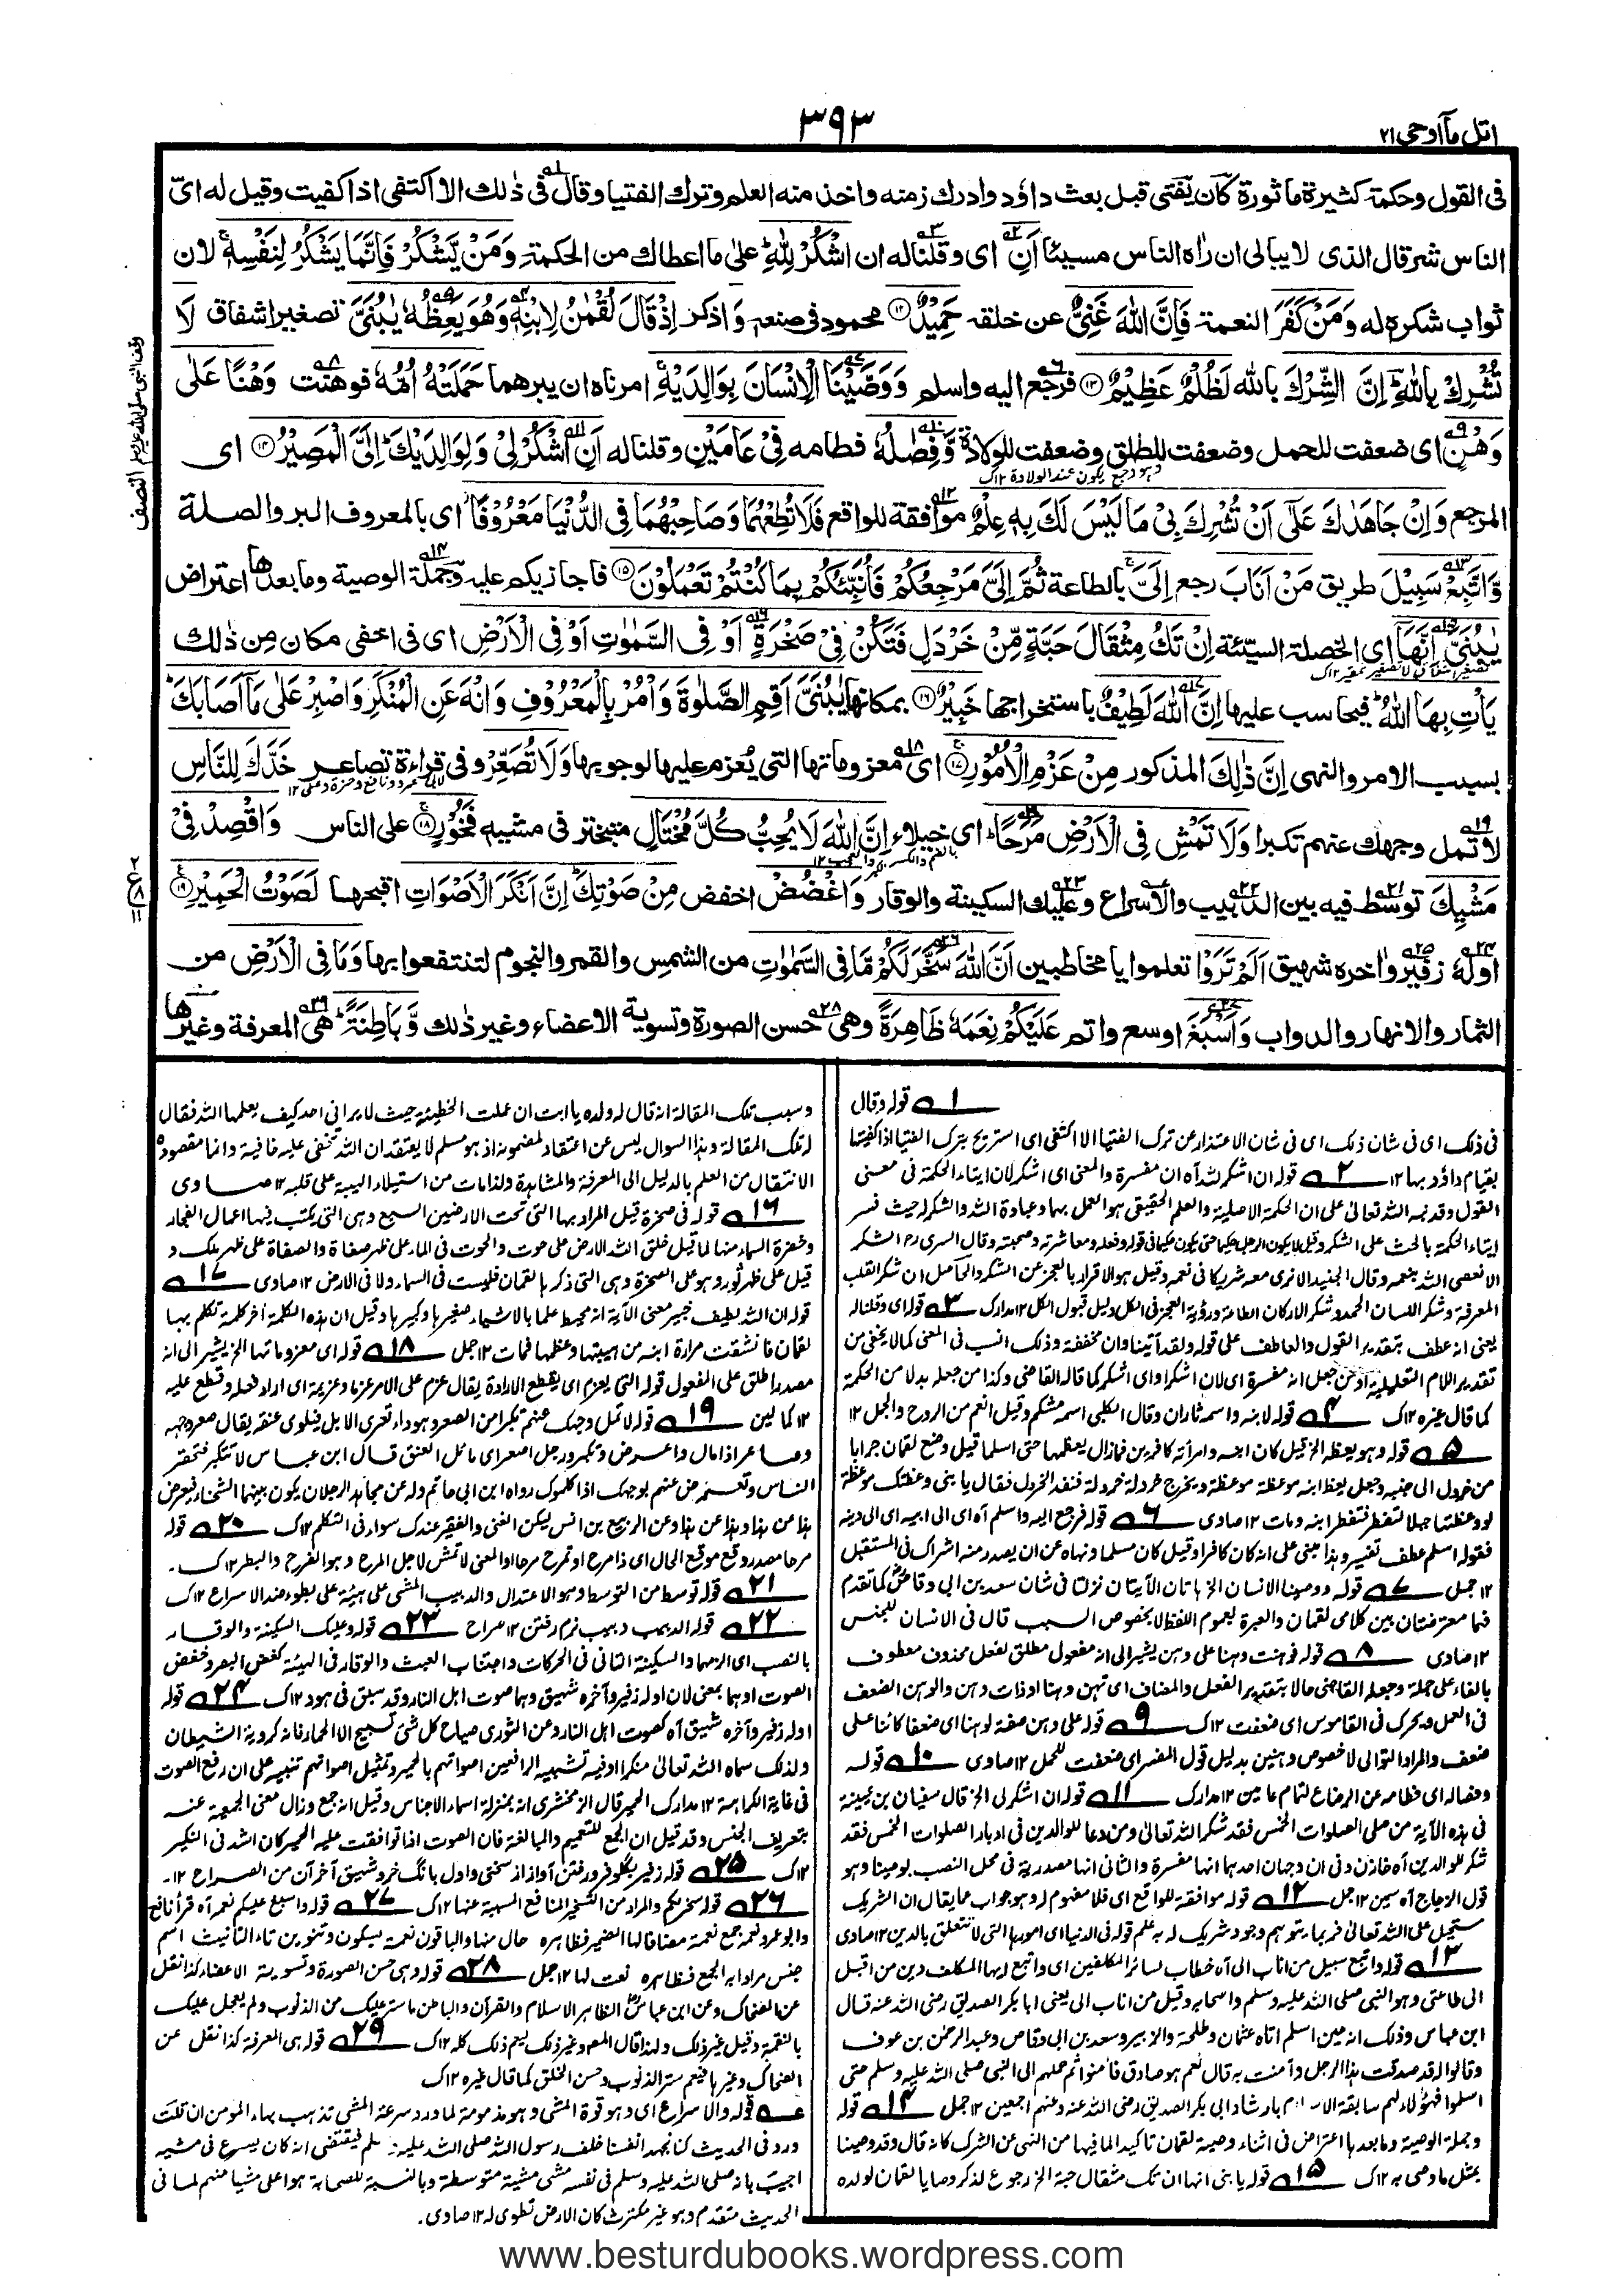 اتل ماأوحی ٢١
٣٩٣
فی القول وحکمته کثیرة ماثورة کان یفتی قبل بعث داؤد وادرك زمنه واخذ منه العلم وترك الفتیا وقال فی ذٰلك الا اکتفی اذا کفیت وقیل له ایّ
الناس شر قال الذی لا یبالی ان راٰه الناس مسیئا اَنِ ای وقلنا له ان اشْکُرْ لِلّٰهِ علیٰ ما اعطاك من الحکمة وَمَنْ یَّشْکُرْ فَاِنَّمَا یَشْکُرُ لِنَفْسِهٖ لان
ثواب شکره له وَمَنْ کَفَرَ النعمة فَاِنَّ اللّٰهَ غَنِیٌّ عن خلقه حَمِیْدٌ ۱۲ محمود فی صنعه وَ اذکر اِذْ قَالَ لُقْمٰنُ لِابْنِهٖ وَهُوَ یَعِظُهٗ یٰبُنَیَّ تصغیر اشفاق لَا
تُشْرِكْ بِاللّٰهِ اِنَّ الشِّرْكَ بالله لَظُلْمٌ عَظِیْمٌ ۱۳ فرجع الیه واسلم وَوَصَّیْنَا الْاِنْسَانَ بِوَالِدَیْهِ امرناه ان یبرهما حَمَلَتْهُ اُمُّهٗ فوهنت وَهْنًا عَلٰی
وَهْنٍ ای ضعفت للحمل وضعفت للطلق وضعفت للولادة وَّفِصٰلُهٗ فطامه فِیْ عَامَیْنِ وقلنا له اَنِ اشْکُرْ لِیْ وَلِوَالِدَیْكَ اِلَیَّ الْمَصِیْرُ ۱۴ ای
وهو وجع یکون عند الولادة ۱۲ک
المرجع وَاِنْ جَاهَدٰكَ عَلٰٓی اَنْ تُشْرِكَ بِیْ مَا لَیْسَ لَكَ بِهٖ عِلْمٌ موافقة للواقع فَلَا تُطِعْهُمَا وَصَاحِبْهُمَا فِی الدُّنْیَا مَعْرُوْفًا ای بالمعروف البر والصلة
وَّاتَّبِعْ سَبِیْلَ طریق مَنْ اَنَابَ رجع اِلَیَّ بالطاعة ثُمَّ اِلَیَّ مَرْجِعُکُمْ فَاُنَبِّئُکُمْ بِمَا کُنْتُمْ تَعْمَلُوْنَ ۱۵ فاجازیکم علیه وجملة الوصیة وما بعدها اعتراض
یٰبُنَیَّ اِنَّهَآ ای الخصلة السیّئة اِنْ تَكُ مِثْقَالَ حَبَّةٍ مِّنْ خَرْدَلٍ فَتَکُنْ فِیْ صَخْرَةٍ اَوْ فِی السَّمٰوٰتِ اَوْ فِی الْاَرْضِ ای فی اخفی مکان من ذٰلك
یَاْتِ بِهَا اللّٰهُ فیحاسب علیها اِنَّ اللّٰهَ لَطِیْفٌ باستخراجها خَبِیْرٌ ۱۶ بمکانها یٰبُنَیَّ اَقِمِ الصَّلٰوةَ وَاْمُرْ بِالْمَعْرُوْفِ وَانْهَ عَنِ الْمُنْکَرِ وَاصْبِرْ عَلٰی مَآ اَصَابَكَ
بسبب الامر والنهی اِنَّ ذٰلِكَ المذکور مِنْ عَزْمِ الْاُمُوْرِ ۱۷ ای معزوماتها التی یُعزم علیها لوجوبها وَلَا تُصَعِّرْ وفی قراءة تصاعر خَدَّكَ لِلنَّاسِ
لا تمل وجهك عنهم تکبرا وَلَا تَمْشِ فِی الْاَرْضِ مَرَحًا ای خیلاء اِنَّ اللّٰهَ لَا یُحِبُّ کُلَّ مُخْتَالٍ متبختر فی مشیه فَخُوْرٍ ۱۸ علی الناس وَاقْصِدْ فِیْ
مَشْیِكَ توسط فیه بین الدبیب والاسراع وعلیك السکینة والوقار وَاغْضُضْ اخفض مِنْ صَوْتِكَ اِنَّ اَنْکَرَ الْاَصْوَاتِ اقبحها لَصَوْتُ الْحَمِیْرِ ۱۹
اوله زفیر واٰخره شهیق اَلَمْ تَرَوْا تعلموا یا مخاطبین اَنَّ اللّٰهَ سَخَّرَ لَکُمْ مَّا فِی السَّمٰوٰتِ من الشمس والقمر والنجوم لتنتفعوا بها وَمَا فِی الْاَرْضِ من
الثمار والانهار والدواب وَاَسْبَغَ اوسع واتم عَلَیْکُمْ نِعَمَهٗ ظَاهِرَةً وهی حسن الصورة وتسویة الاعضاء وغیر ذٰلك وَّبَاطِنَةً هی المعرفة وغیرها
النصف
١ قوله وقال
فی ذلك ای فی شان ذلك ای فی شان الاعتذار عن ترك الفتیا الا اکتفی ای استریح بترك الفتیا اذا کفیتها
بقیام داؤد بها ۱۲ ٢ قوله ان اشکر لله آه ان مفسرة والمعنی ای اشکر لان ایتاء الحکمة فی معنی
القول وقد نبه الله تعالی علی ان الحکمة الاصلیة والعلم الحقیقی هو العمل بهما وعبادة الله والشکر له حیث فسر
المعرفة وشکر اللسان الحمد وشکر الارکان الطاعة ورؤیة العجز فی الکل دلیل قبول الکل ۱۲ مدارك ٣ قوله ای وقلنا له
کما قال غیره ۱۲ک ٤ قوله لابنه واسمه ثاران وقال الکلبی اسمه مشکم وقیل انعم من الروح والجمل ۱۲
٥ قوله وهو یعظه الخ قیل کان ابنه وامرأته کافرین فمازال یعظهما حتی اسلما قیل وضع لقمان جرابا
من خردل الی جنبه وجعل یعظ ابنه موعظة موعظة ویخرج خردلة خردلة فنفد الخردل فقال یا بنی وعظتك موعظة
لو وعظتها جبلا لتفطر فتفطر ابنه ومات ۱۲ صاوی ٦ قوله فرجع الیه واسلم آه ای الی ابیه ای الی دینه
فقوله اسلم عطف تفسیر وهذا مبنی علی انه کان کافرا وقیل کان مسلما ونهاه عن ان یصدر منه اشراك فی المستقبل
۱۲ جمل ٧ قوله ووصینا الانسان الخ هاتان الآیتان نزلتا فی شان سعد بن ابی وقاص کما تقدم
فهما معترضتان بین کلامی لقمان والعبرة بعموم اللفظ لا بخصوص السبب قال فی الانسان للجنس
۱۲ صاوی ٨ قوله فوهنت وهنا علی وهن یشیر الی انه مفعول مطلق لفعل محذوف معطوف
بالفاء علی جملة وجعله القاضی حالا بتقدیر الفعل والمضاف ای تهن وهنا او ذات وهن والوهن الضعف
فی العمل ویحرك فی القاموس ای ضعفت ۱۲ک ٩ قوله علی وهن صفة لوهنا ای ضعفا کائنا علی
ضعف والمراد التوالی لا خصوص وهنین بدلیل قول المفسر ای ضعفت للحمل ۱۲ صاوی ١٠ قوله
وفصاله ای فطامه عن الرضاع لتمام عامین ۱۲ مدارك ١١ قوله ان اشکر لی الخ قال سفیان بن عیینة
فی هذه الآیة من صلی الصلوات الخمس فقد شکر الله تعالی ومن دعا للوالدین فی ادبار الصلوات الخمس فقد
شکر للوالدین آه خازن وفی ان وجهان احدهما انها مفسرة والثانی انها مصدریة فی محل النصب بوصینا وهو
قول الزجاج آه سمین ۱۲ جمل ١٢ قوله موافقة للواقع ای فلا مفهوم له وهو جواب عما یقال ان الشریك
مستحیل علی الله تعالی فربما یتوهم وجود شریك له به علم قوله فی الدنیا ای امورها التی لا تتعلق بالدین ۱۲ صاوی
١٣ قوله واتبع سبیل من اناب الی آه خطاب لسائر المکلفین ای واتبع ایها المکلف دین من اقبل
الی طاعتی وهو النبی صلی الله علیه وسلم واصحابه وقیل من اناب الی یعنی ابا بکر الصدیق رضی الله عنه قال
ابن عباس وذلك انه حین اسلم اتاه عثمان وطلحة والزبیر وسعد بن ابی وقاص وعبد الرحمٰن بن عوف
وقالوا له قد صدقت هذا الرجل وآمنت به قال نعم هو صادق فآمنوا ثم حملهم الی النبی صلی الله علیه وسلم حتی
اسلموا فهؤلاء لهم سابقة الاسلام بارشاد ابی بکر الصدیق رضی الله عنه وعنهم اجمعین ۱۲ جمل ١٤ قوله
وجملة الوصیة وما بعدها اعتراض فی اثناء وصیة لقمان تاکیدا لما فیها من النهی عن الشرك کانه قال وقد وصینا
بمثل ما وصی به ۱۲ک ١٥ قوله یا بنی انها ان تك مثقال حبة الخ رجوع لذکر وصایا لقمان لولده
وسبب تلك المقالة انه قال له ولده یا ابت ان عملت الخطیئة حیث لا یرانی احد کیف یعلمها الله فقال
له تلك المقالة وهذا السوال لیس عن اعتقاد لمضمونه اذ هو مسلم لا یعتقد ان الله تخفی علیه خافیة وانما مقصوده
الانتقال من العلم بالدلیل الی المعرفة والمشاهدة ولذا مات من استیلاء الهیبة علی قلبه ۱۲ صاوی
١٦ قوله فی صخرة قیل المراد بها التی تحت الارضین السبع وهی التی یکتب فیها اعمال الفجار
وخضرة السماء منها لما قیل خلق الله الارض علی حوت والحوت فی الماء علی ظهر صفاة والصفاة علی ظهر ملك و
قیل علی ظهر ثور وهو علی الصخرة وهی التی ذکرها لقمان فلیست فی السماء ولا فی الارض ۱۲ صاوی ١٧
قوله ان الله لطیف خبیر معنی الآیة انه محیط علما بالاشیاء صغیرها وکبیرها وقیل ان هذه الکلمة آخر کلمة تکلم بها
لقمان فانشقت مرارة ابنه من هیبتها وعظمها فمات ۱۲ جمل ١٨ قوله ای معزوماتها الخ یشیر الی انه
مصدر اطلق علی المفعول قوله التی یعزم ای یقطع الارادة یقال عزم علی الامر عزما وعزیمة ای اراد فعله وقطع علیه
۱۲ کمالین ١٩ قوله لا تمل وجهك عنهم تکبرا من الصعر وهو داء تعری الابل فیلوی عنقه یقال صعر وجهه
وصاعر اذا مال واعرض وتکبر ورجل اصعر ای مائل العنق قال ابن عباس لا تتکبر فتحقر
الناس وتعرض عنهم بوجهك اذا کلموك رواه ابن ابی حاتم وله عن مجاهد الرجلان یکون بینهما الشحناء فیعرض
هذا عن هذا وهذا عن هذا وعن الربیع بن انس لیکن الغنی والفقیر عندك سواء فی التکلم ۱۲ک ٢٠ قوله
مرحا مصدر وقع موقع الحال ای ذا مرح او تمرح مرحا او المعنی لا تمش لاجل المرح وهو الفرح والبطر ۱۲ک
٢١ قوله توسط من التوسط وهو الاعتدال والدبیب المشی علی هیئة علی بطوء ضد الاسراع ۱۲ک
٢٢ قوله الدبیب دبیب نرم رفتن ۱۲ صراح ٢٣ قوله وعلیك السکینة والوقار
بالنصب ای الزمهما والسکینة التانی فی الحرکات واجتناب العبث والوقار فی الهیئة کغض البصر وخفض
الصوت او هما بمعنی لان اوله زفیر وآخره شهیق وهما صوت اهل النار وقد سبق فی هود ۱۲ک ٢٤ قوله
اوله زفیر وآخره شهیق آه کصوت اهل النار وعن الثوری صیاح کل شئ تسبیح الا الحمار فانه لرؤیة الشیطان
ولذلك سماه الله تعالی منکرا وفیه تشبیه الرافعین اصواتهم بالحمیر وتمثیل اصواتهم تنبیه علی ان رفع الصوت
فی غایة الکراهة ۱۲ مدارك الحمیر قال الزمخشری انه بمنزلة اسماء الاجناس وقیل انه جمع وزال معنی الجمعیة عنه
بتعریف الجنس وقد قیل ان الجمع للتعمیم والمبالغة فان الصوت اذا توافقت علیه الحمیر کان اشد فی النکیر
۱۲ک ٢٥ قوله زفیر بگلو فرو رفتن آواز از سختی واول بانگ خر وشهیق آخر آن من الصراح ۱۲
٢٦ قوله سخر لکم والمراد من التسخیر المنافع المسببة عنها ۱۲ک ٢٧ قوله واسبغ علیکم نعمه آه قرأ نافع
وابو عمرو نعمه جمع نعمة مضافا لها الضمیر فظاهره حال منها والباقون نعمة بسکون وتنوین تاء التانیث اسم
جنس مرادا به الجمع فظاهره نعت لها ۱۲ جمل ٢٨ قوله وهی حسن الصورة وتسویة الاعضاء کذا نقل
عن الضحاك وعن ابن عباس الظاهر الاسلام والقرآن والباطن ما ستر علیك من الذنوب ولم یعجل علیك
بالنقمة وقیل غیر ذلك ولهذا قال المص وغیر ذلك لیعم ذلك کله ۱۲ک ٢٩ قوله هی المعرفة کذا نقل عن
الضحاك وغیرها فیعم ستر الذنوب وحسن الخلق کما قال غیره ۱۲ک
قوله والاسراع ای وهو قوة المشی وهو مذمومة لما ورد سرعة المشی تذهب بهاء المؤمن ان قلت
ورد فی الحدیث کنا نجهد انفسنا خلف رسول الله صلی الله علیه وسلم فیقتضی انه کان یسرع فی مشیه
اجیب بانه صلی الله علیه وسلم فی نفسه مشی مشیة متوسطة وبالنسبة للصحابة هو اعلی مشیا منهم لما فی
الحدیث متقدم وهو غیر مکترث کان الارض تطوی له ۱۲ صاوی
www.besturdubooks.wordpress.com